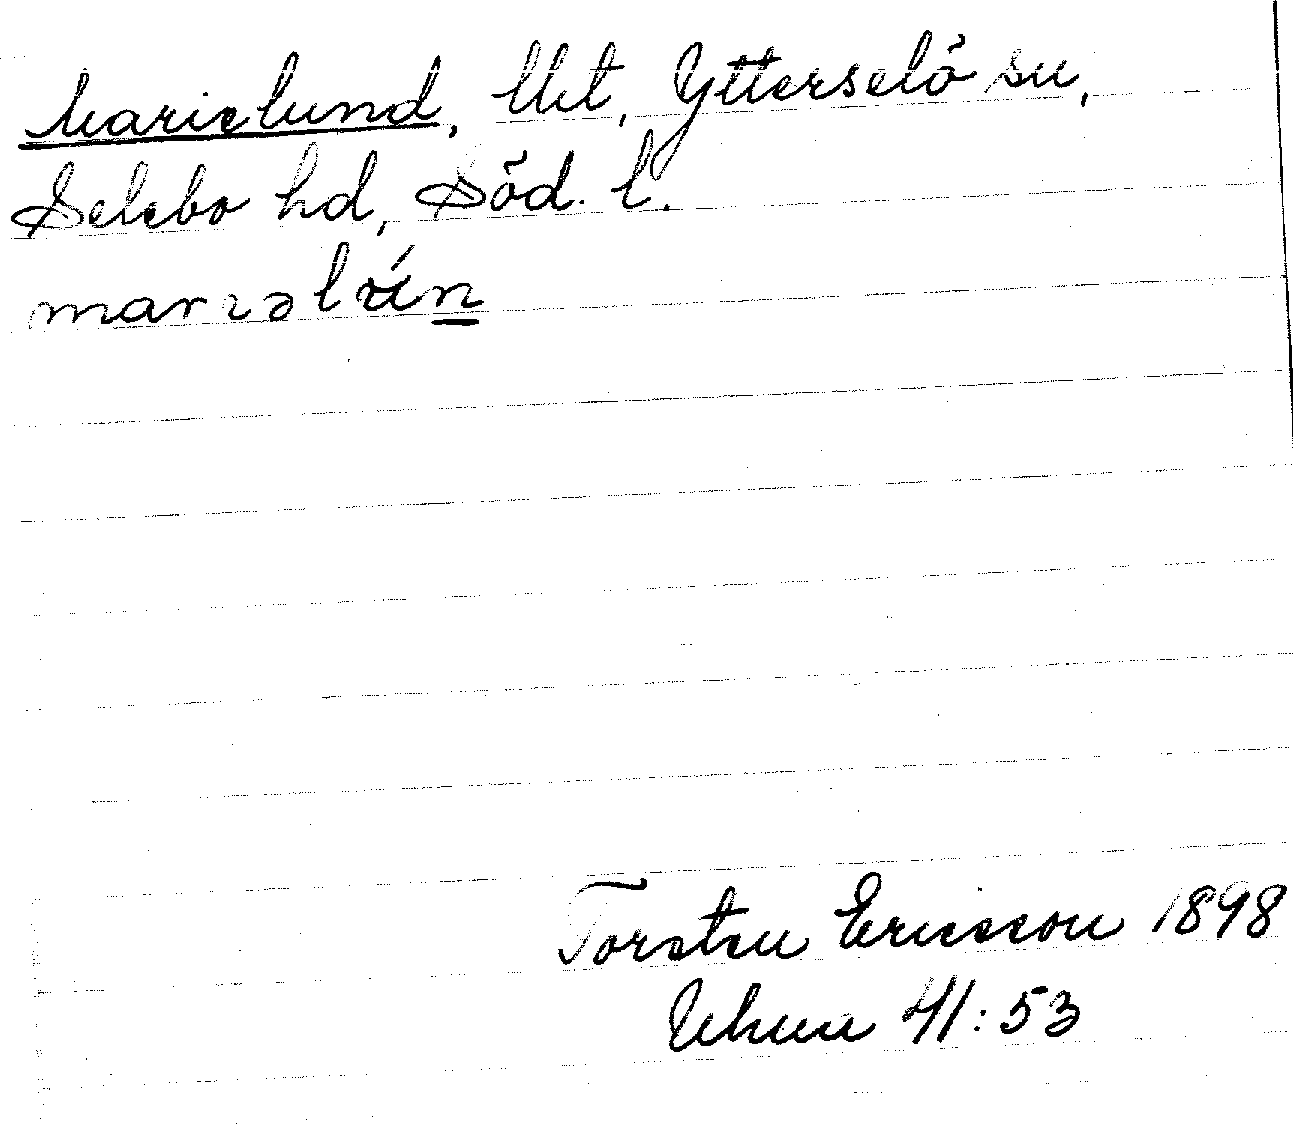 Marielund, Utt, Ytterselö sn,
Selebo hd, Söd. l.
marıəlún
Torsten Ericsson 1898
Uhuu 41:53